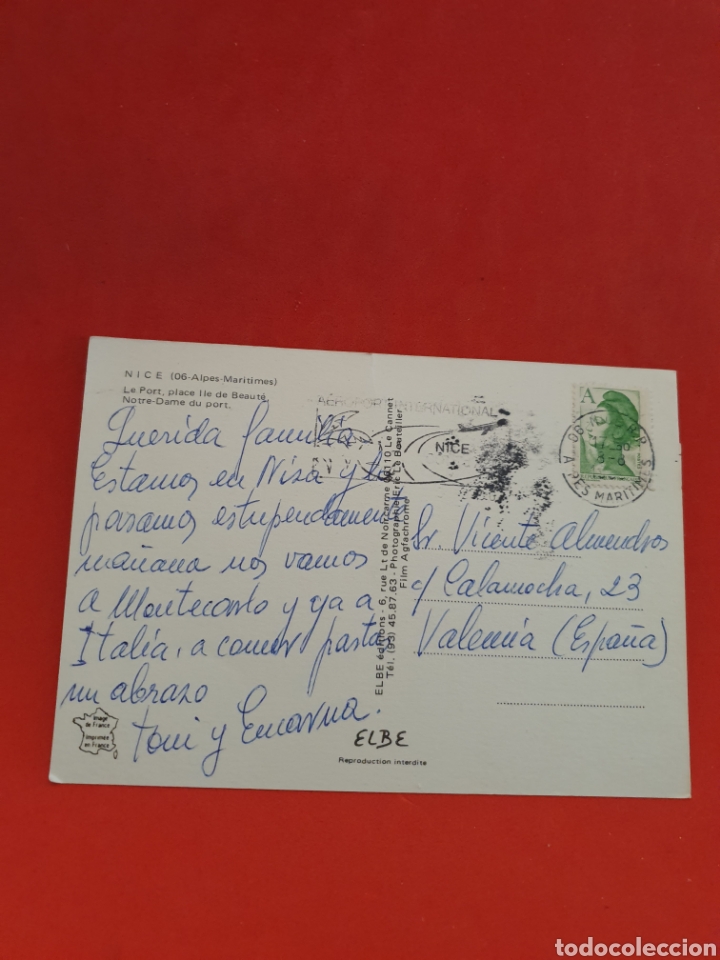 NICE (06-Alpes-Maritimes)
Le Port, place Ile de Beauté
Notre-Dame du port.
AÉROPORT INTERNATIONAL
NICE
A
ALPES MARITIMES
Querida familia
Estamos en Niza y lo
pasamos estupendamente
mañana nos vamos
a Montecarlo y ya a
Italia, a comer pasta
un abrazo
Toni y Encarna.
ELBE éditions - 6, rue Lt de Noircarme 06110 Le Cannet
Tél. (93) 45.87.63 - Photographe Eric Le Bouteiller
Film Agfachrome
Sr. Vicente Almendros
c/ Calamocha, 23
Valencia (España)
Image
de France
Imprimée
en France
ELBE
Reproduction interdite
todocoleccion